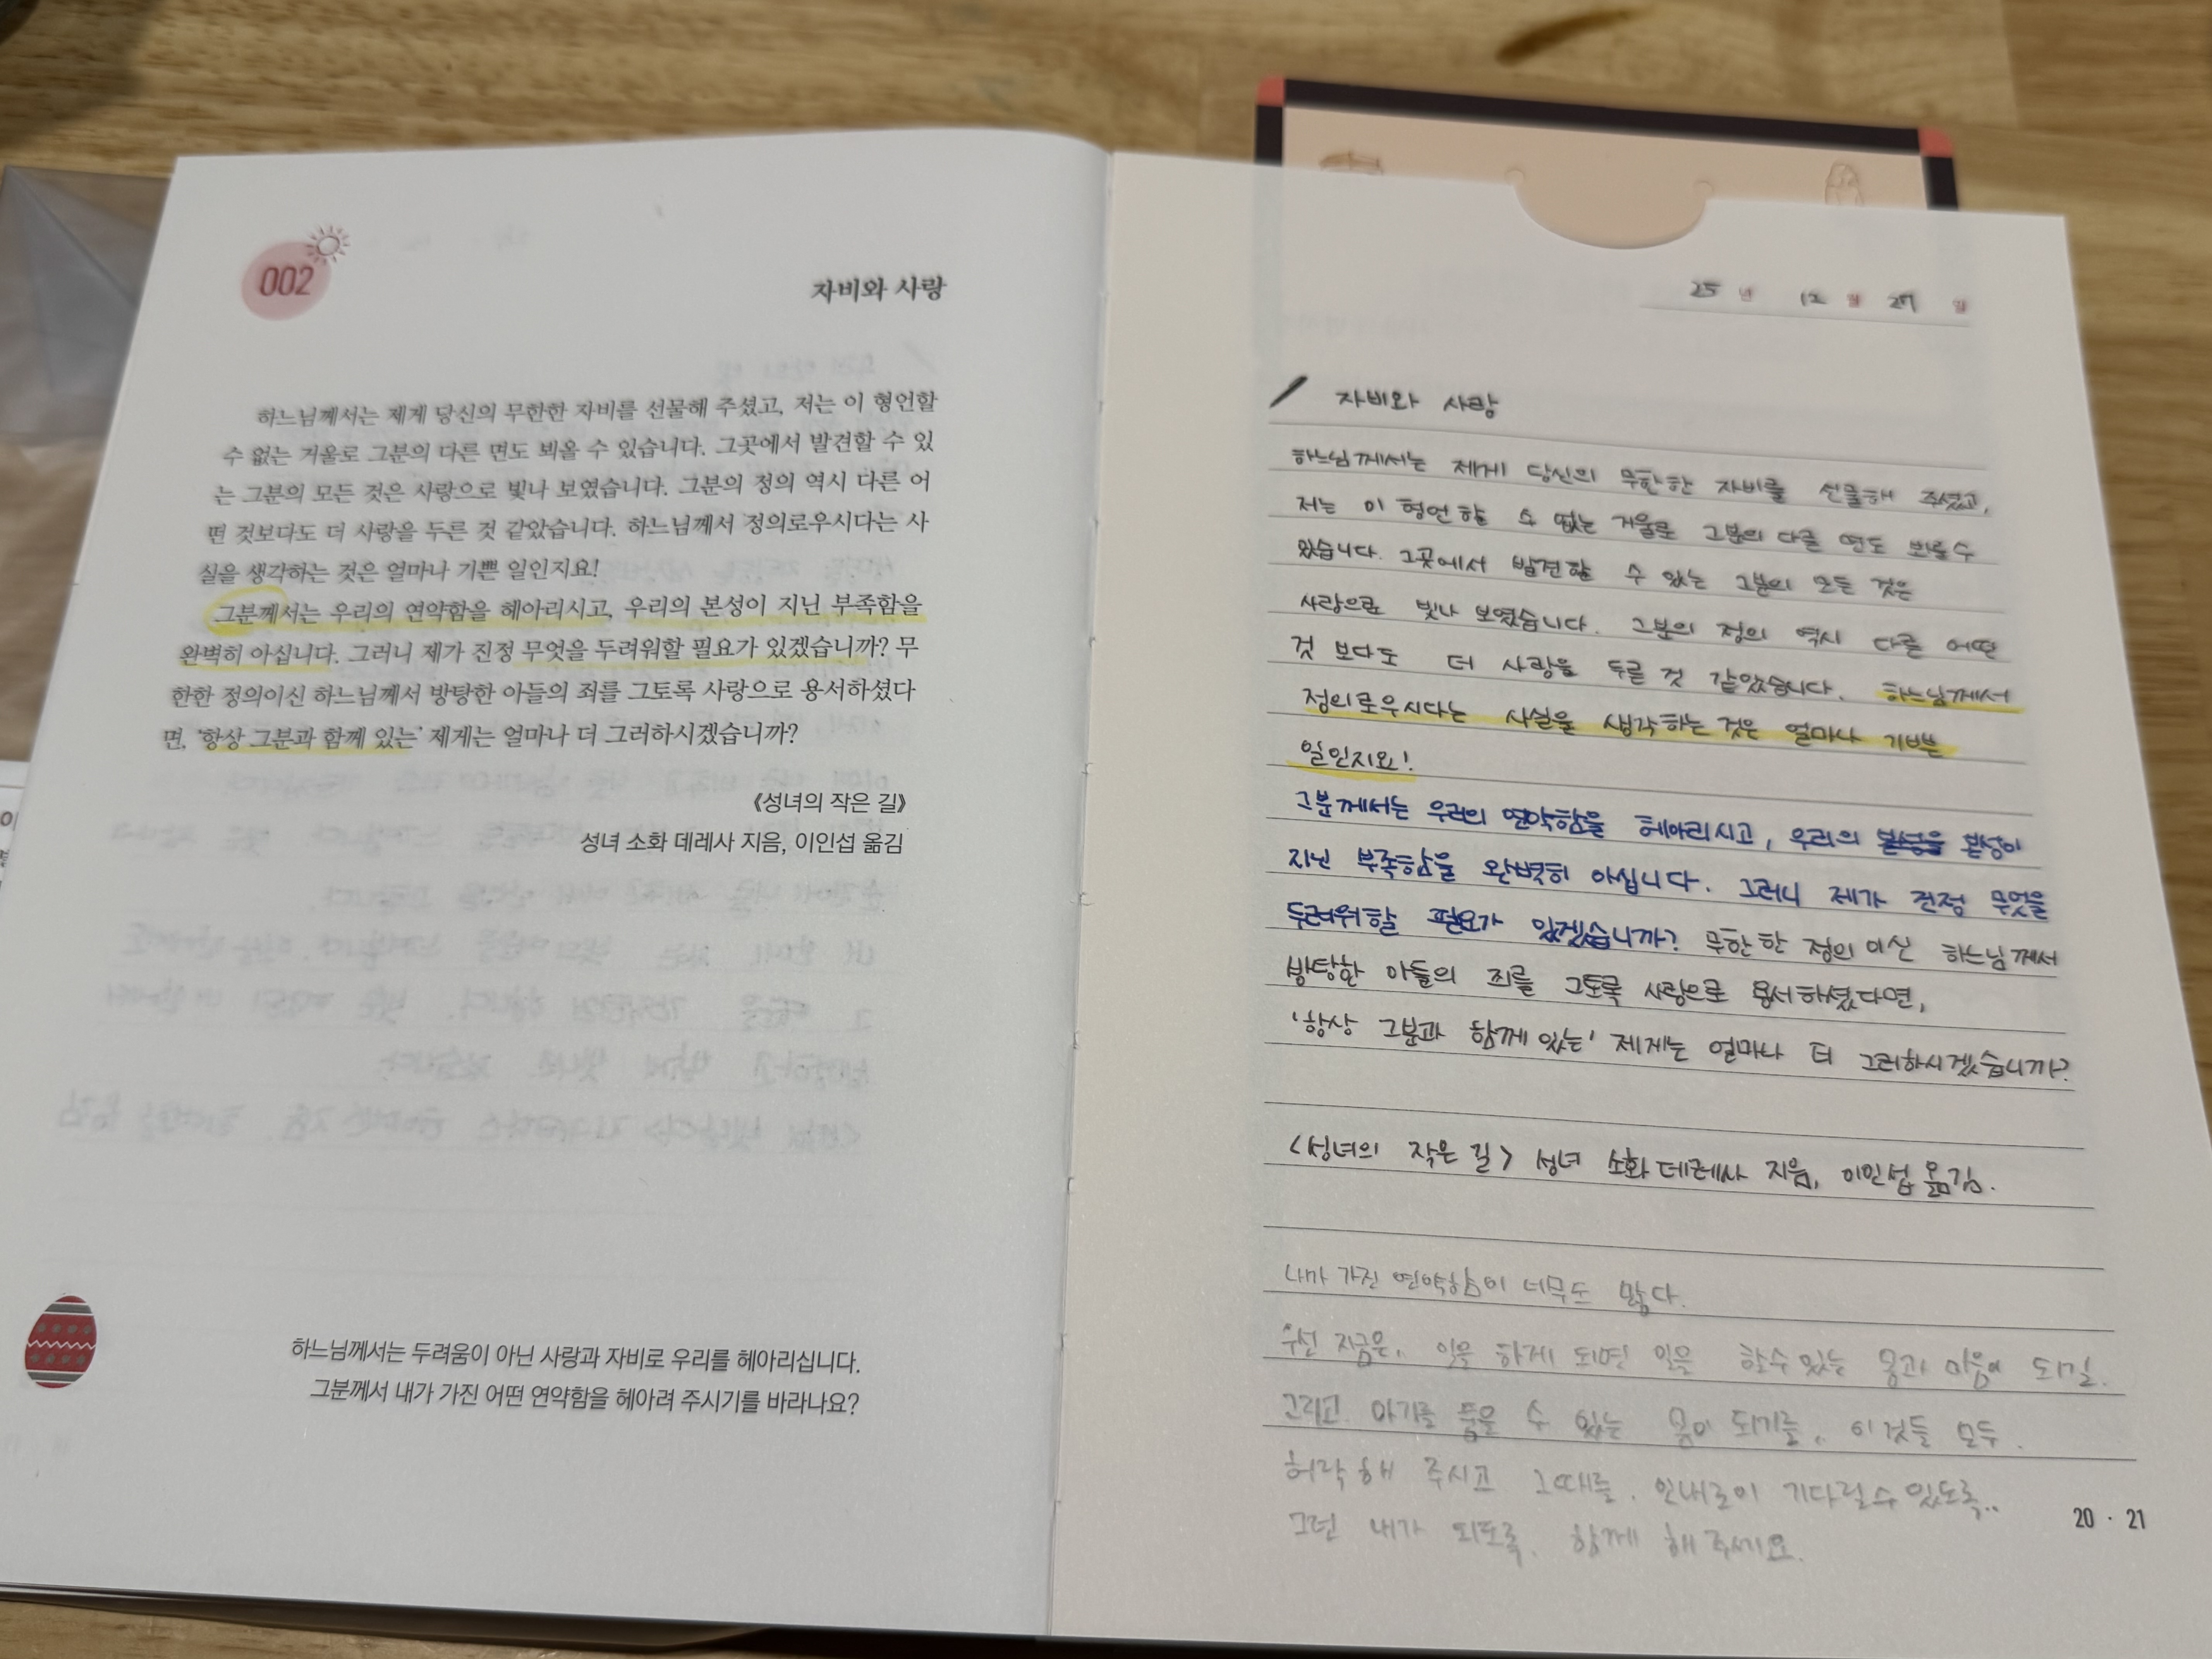 002
자비와 사랑
하느님께서는 제게 당신의 무한한 자비를 선물해 주셨고, 저는 이 형언할
수 없는 거울로 그분의 다른 면도 뵈올 수 있습니다. 그곳에서 발견할 수 있
는 그분의 모든 것은 사랑으로 빛나 보였습니다. 그분의 정의 역시 다른 어
떤 것보다도 더 사랑을 두른 것 같았습니다. 하느님께서 정의로우시다는 사
실을 생각하는 것은 얼마나 기쁜 일인지요!
그분께서는 우리의 연약함을 헤아리시고, 우리의 본성이 지닌 부족함을
완벽히 아십니다. 그러니 제가 진정 무엇을 두려워할 필요가 있겠습니까? 무
한한 정의이신 하느님께서 방탕한 아들의 죄를 그토록 사랑으로 용서하셨다
면, ‘항상 그분과 함께 있는’ 제게는 얼마나 더 그러하시겠습니까?
《성녀의 작은 길》
성녀 소화 데레사 지음, 이인섭 옮김
하느님께서는 두려움이 아닌 사랑과 자비로 우리를 헤아리십니다.
그분께서 내가 가진 어떤 연약함을 헤아려 주시기를 바라나요?
25 년 12 월 27 일
자비와 사랑
하느님께서는 제게 당신의 무한한 자비를 선물해 주셨고,
저는 이 형언할 수 없는 거울로 그분의 다른 면도 뵈올 수
있습니다. 그곳에서 발견할 수 있는 그분의 모든 것은
사랑으로 빛나 보였습니다. 그분의 정의 역시 다른 어떤
것 보다도 더 사랑을 두른 것 같았습니다. 하느님께서
정의로우시다는 사실을 생각하는 것은 얼마나 기쁜
일인지요!
그분께서는 우리의 연약함을 헤아리시고, 우리의 본성이
지닌 부족함을 완벽히 아십니다. 그러니 제가 진정 무엇을
두려워할 필요가 있겠습니까? 무한한 정의이신 하느님께서
방탕한 아들의 죄를 그토록 사랑으로 용서하셨다면,
'항상 그분과 함께 있는' 제게는 얼마나 더 그러하시겠습니까?
<성녀의 작은 길> 성녀 소화 데레사 지음, 이인섭 옮김.
내가 가진 연약함이 너무도 많다.
우선 지금은, 일을 하게 되면 일을 할 수 있는 몸과 마음이 되길.
그리고 아기를 품을 수 있는 몸이 되기를, 이것들 모두
허락해 주시고 그때를. 인내로이 기다릴 수 있도록..
그런 내가 되도록. 함께 해 주세요.
20 · 21